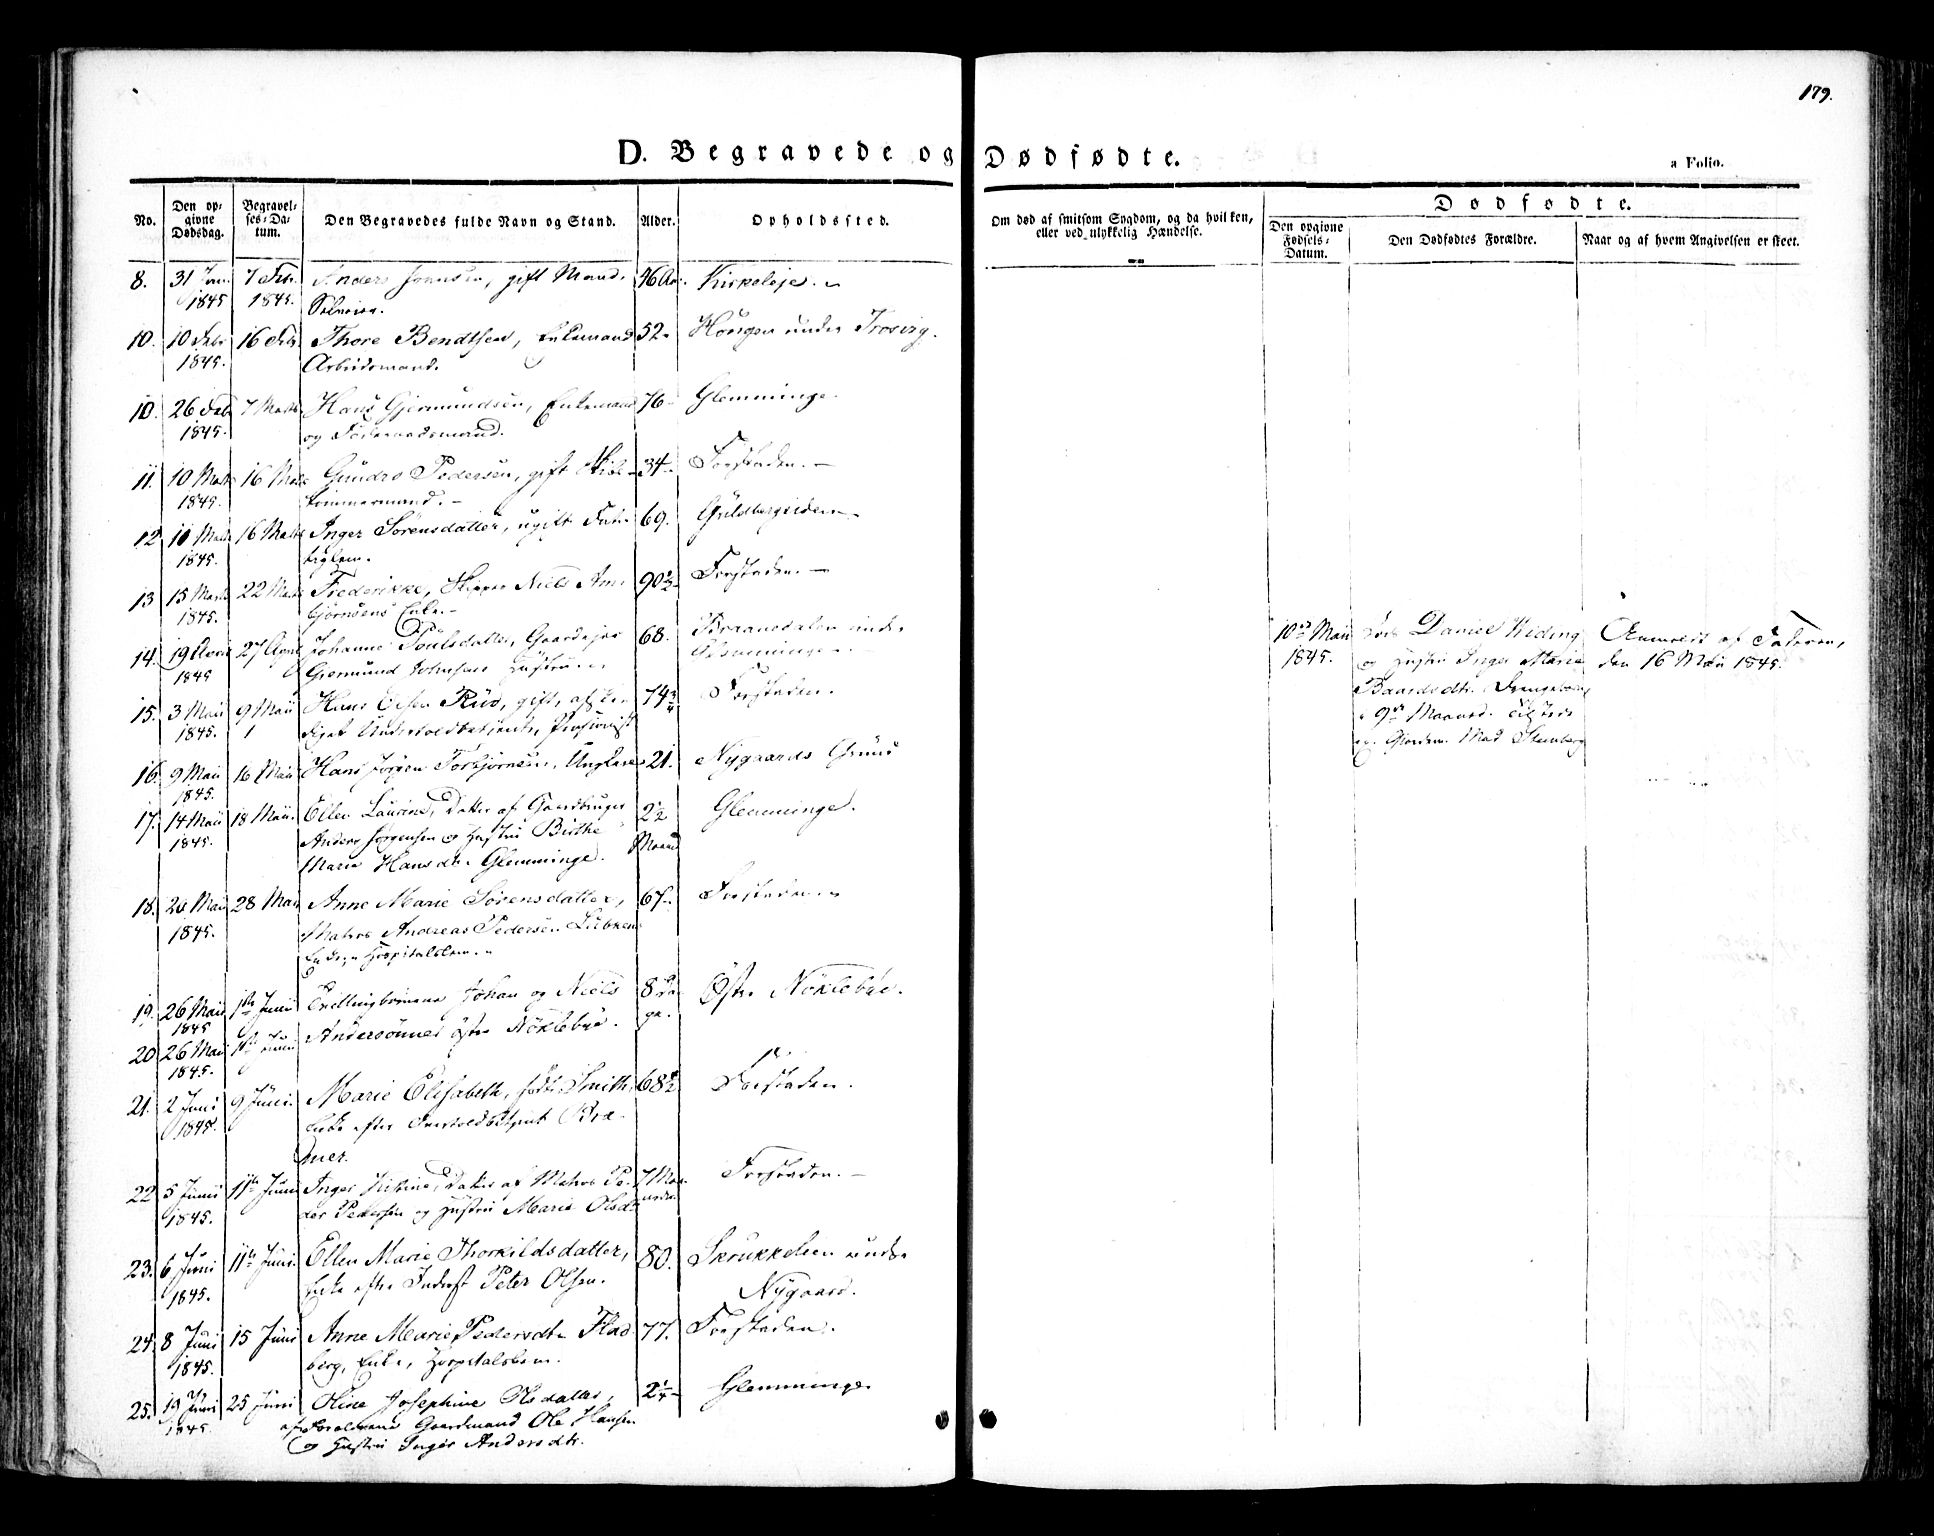 179.
D. Begravede og Dødfødte.
a Folio.
No.
Den opgivne Dødsdag.
Begravelses-Datum.
Den Begravedes fulde Navn og Stand.
Alder.
Opholdssted.
Om død af smitsom Sygdom, og da hvilken,
eller ved ulykkelig Hændelse.
Dødfødte.
Den opgivne Fødsels-Datum.
Den Dødfødtes Forældre.
Naar og af hvem Angivelsen er skeet.
8. 31 Jan. 7 Febr. Anders Jonnsen, gift Mand. 46 Aar. Kirkeleje.
1845 1845.
10. 10 Febr 16 Febr Thore Bendtsen, Enkemand 52. Hougen under Trosvig.
1845. Arbeidsmand.
10. 26 Feb 7 Marts Hans Gjermundsen, Enkemand 76 Glemminge.
1845. og
11. 10 Marts 16 Marts Gundro Pedersen, gift 34. Forstaden.
1845. tømmermand.
12 10 Marts 16 Marts Inger Sørensdatter, ugift 69. Guldbergsiden
1845.
13 15 Marts 22 Marts Frederikke, Skipper Niels Am- 90½ Forstaden.
1845. bjørnsens Enke.
14. 19 April 27 April Johanne Poulsdatter, Gaardejer 68. under
1845 Germund Johnsens Hustru Glemminge
15. 3 Maii 9 Maii Hans Olsen Rud, gift, 74 Forstaden.
1845. Pensionist
16. 9 Maii 16 Maii Hans Jørgen Torbjørnsen, Ungkarl 21. Nygaards Grund
1845.
17. 14 Maii 18 Maii. Ellen Laurine, Datter af Gaardbruger 2½ Glemminge.
1845. Anders Jørgensen og Hustru Birthe Maand
Marie Hansdtr. Glemminge.
18. 20 Maii 28 Maii Anne Marie Sørensdatter, 67 Forstaden.
1845. Matros Andreas Pedersen Lübkens
Enke, Hospitalslem.
19. 26 Maii 1ste Junii Tvillingbörnene Johan og Niels 8 Da- Østre Nöklebye.
1845 Andersönner østre Nöklebye. ge.
20 26 Maii 1ste Junii
1845.
21. 2 Juni 9 Juni. Marie Elisabeth, født Smith, 68½ Forstaden.
1845. Enke efter Bræ-
mer.
22 5 Junii 11te Junii Inger Kistine, Datter af Matros Pe- 7 Maa- Forstaden.
1845. der Pedersen og Hustru Marie Olsdtr neder
23. 6 Juni 11te Juni. Ellen Marie Thorkildsdatter, 80. Skrukkelien under
1845. Enke efter Inderst Peter Olsen. Nygaard.
24. 8 Juni 15 Juni Anne Marie Pedersdtr Flad- 77. Forstaden.
1845. berg, Enke, Hospitalslem.
25. 19 Juni 25 Juni Oline Josephine Olsdatter, 2¼ Glemminge
1845. af Forældrene Gaardmand Ole Hansen
og Hustru Inger Andersdtr.
10de Maii Daniel Kiding Anmeldt af Faderen,
1845. og Hustru Inger Marie den 16 Maii 1845.
Baardsdtr. Drengebarn
9de Maaned.